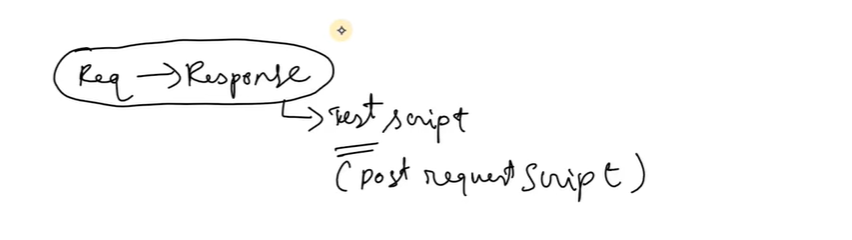 Req → Response
Test script
(post request script)